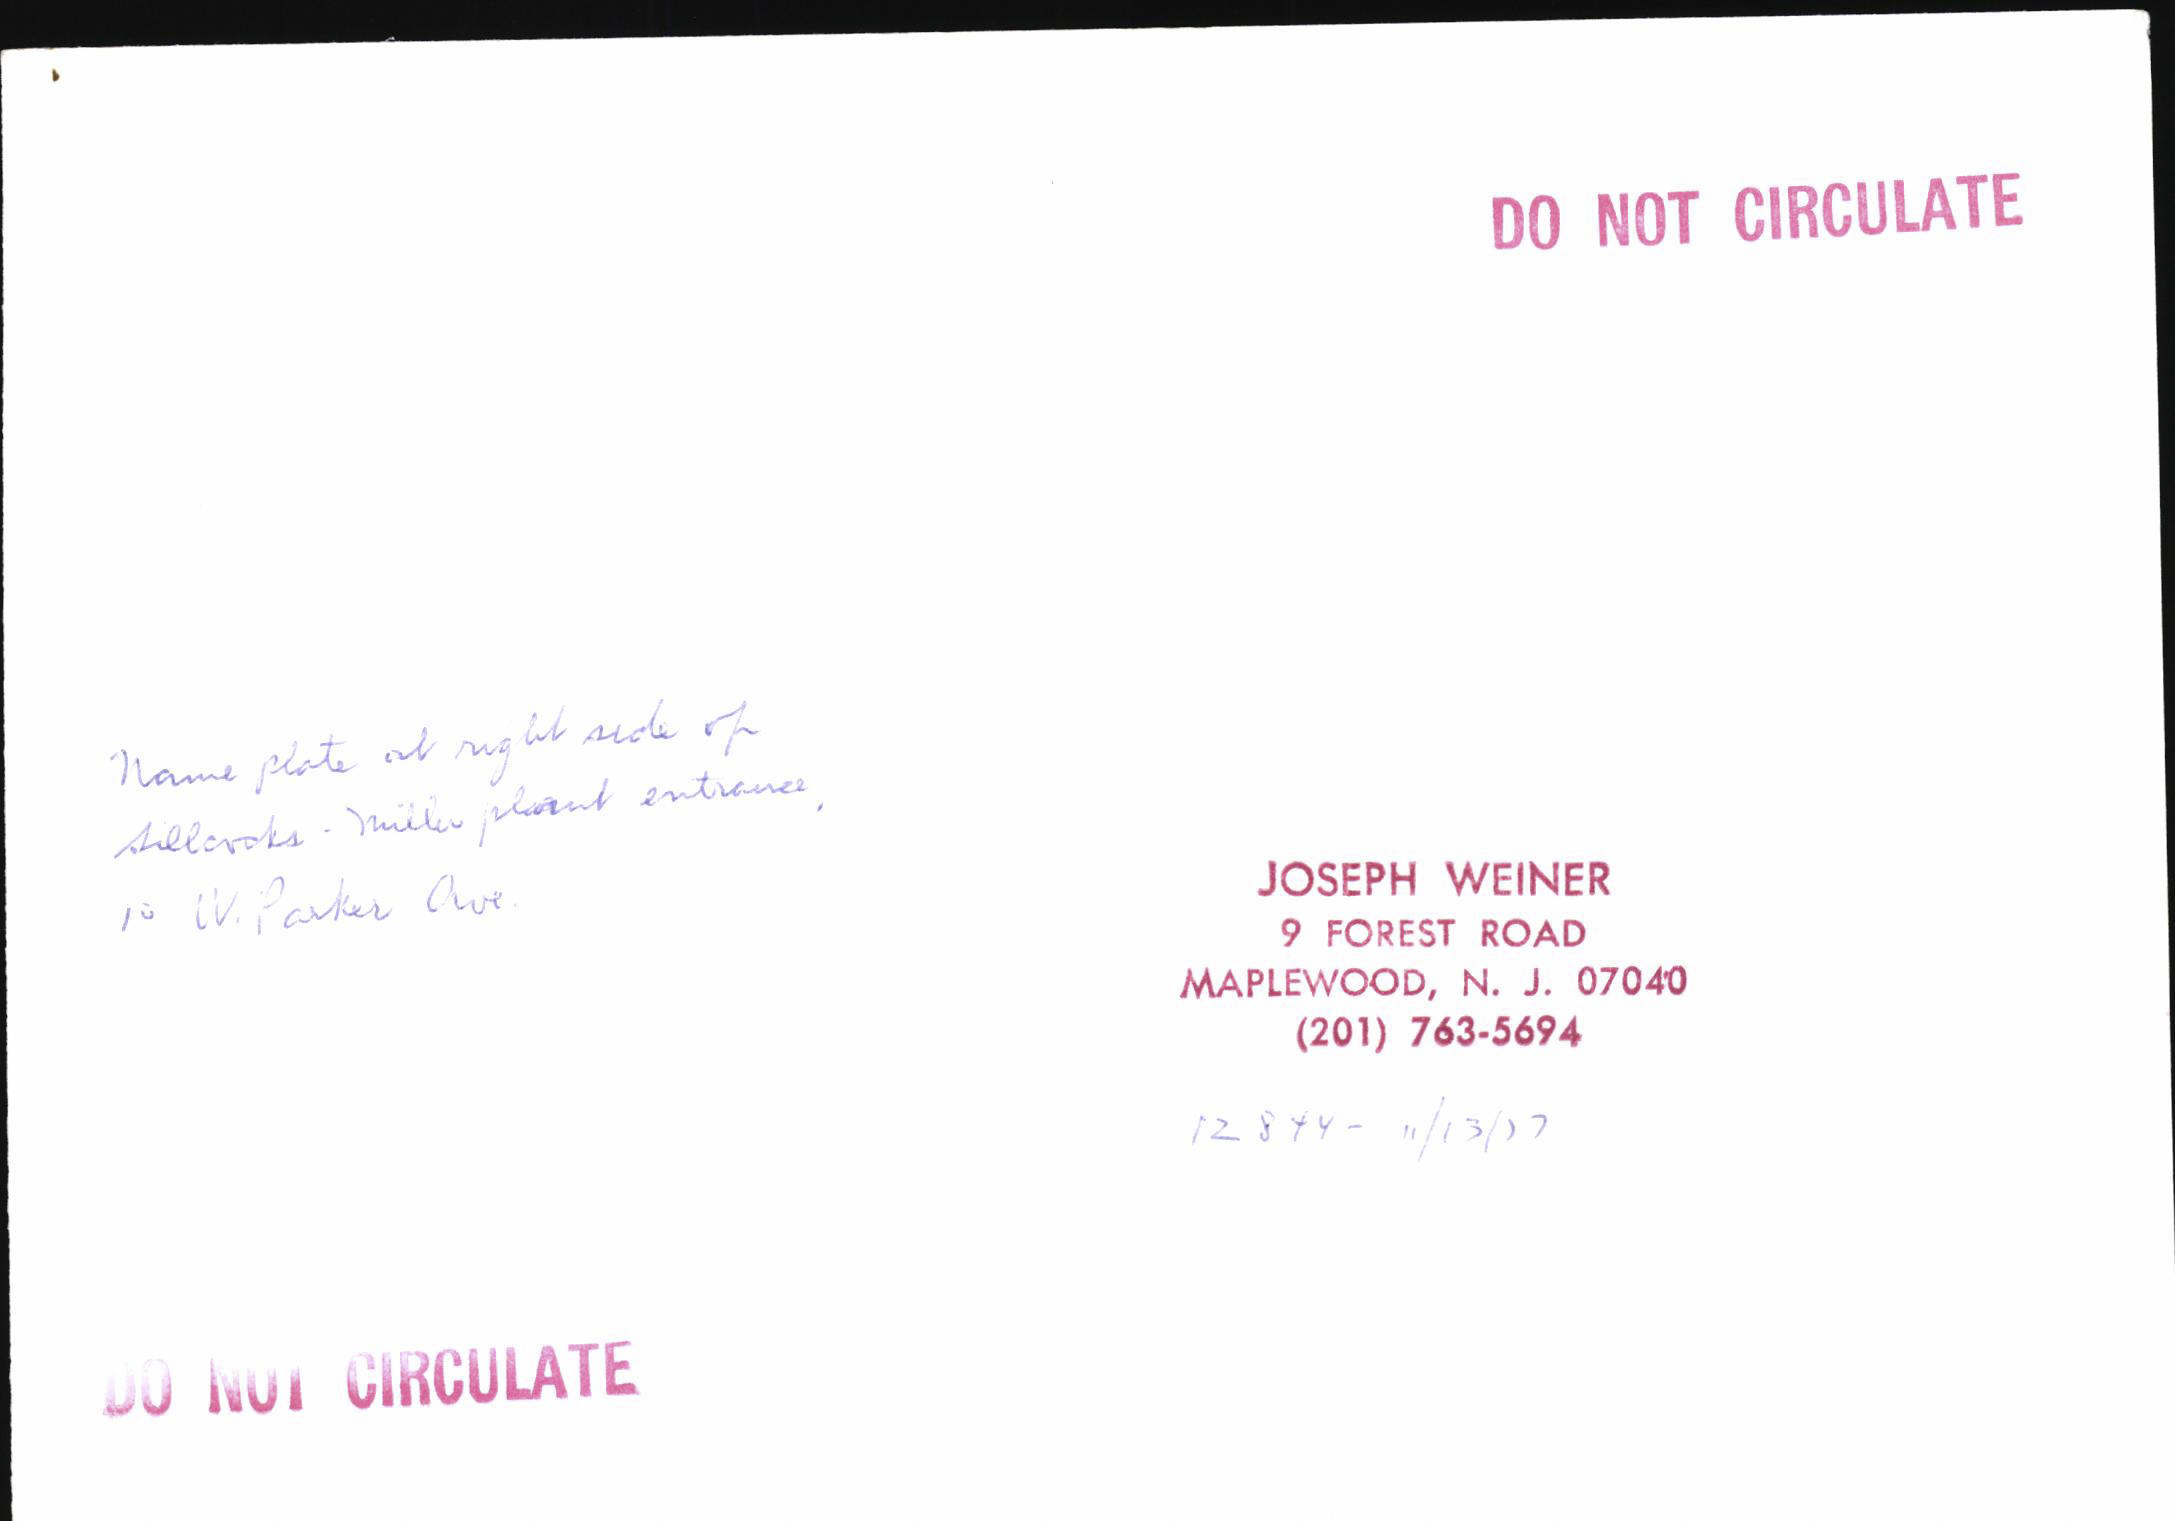 DO NOT CIRCULATE
Name plate at right side of
Sillcocks-Miller plant entrance,
10 W. Parker Ave.
JOSEPH WEINER
9 FOREST ROAD
MAPLEWOOD, N. J. 07040
(201) 763-5694
12844- 11/13/77
DO NOT CIRCULATE